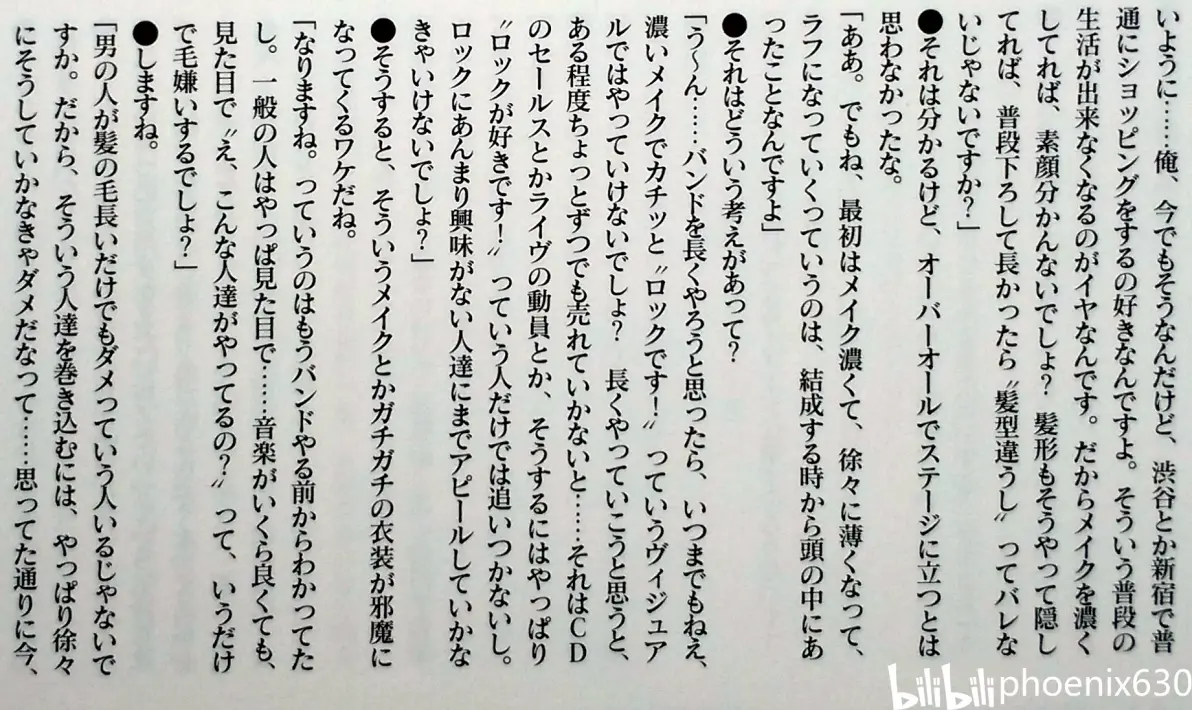 いように……俺、今でもそうなんだけど、渋谷とか新宿で普
通にショッピングをするの好きなんですよ。そういう普段の
生活が出来なくなるのがイヤなんです。だからメイクを濃く
してれば、素顔分かんないでしょ？　髪形もそうやって隠し
てれば、普段下ろして長かったら〝髪型違うし〟ってバレな
いじゃないですか？」
●それは分かるけど、オーバーオールでステージに立つとは
思わなかったな。
「ああ。でもね、最初はメイク濃くて、徐々に薄くなって、
ラフになっていくっていうのは、結成する時から頭の中にあ
ったことなんですよ」
●それはどういう考えがあって？
「う〜ん……バンドを長くやろうと思ったら、いつまでもねえ、
濃いメイクでカチッと〝ロックです！〟っていうヴィジュア
ルではやっていけないでしょ？　長くやっていこうと思うと、
ある程度ちょっとずつでも売れていかないと……それはＣＤ
のセールスとかライヴの動員とか、そうするにはやっぱり
〝ロックが好きです！〟っていう人だけでは追いつかないし。
ロックにあんまり興味がない人達にまでアピールしていかな
きゃいけないでしょ？」
●そうすると、そういうメイクとかガチガチの衣装が邪魔に
なってくるワケだね。
「なりますね。っていうのはもうバンドやる前からわかってた
し。一般の人はやっぱ見た目で……音楽がいくら良くても、
見た目で〝え、こんな人達がやってるの？〟って、いうだけ
で毛嫌いするでしょ？」
●しますね。
「男の人が髪の毛長いだけでもダメっていう人いるじゃないで
すか。だから、そういう人達を巻き込むには、やっぱり徐々
にそうしていかなきゃダメだなって……思ってた通りに今、
bilibili phoenix630